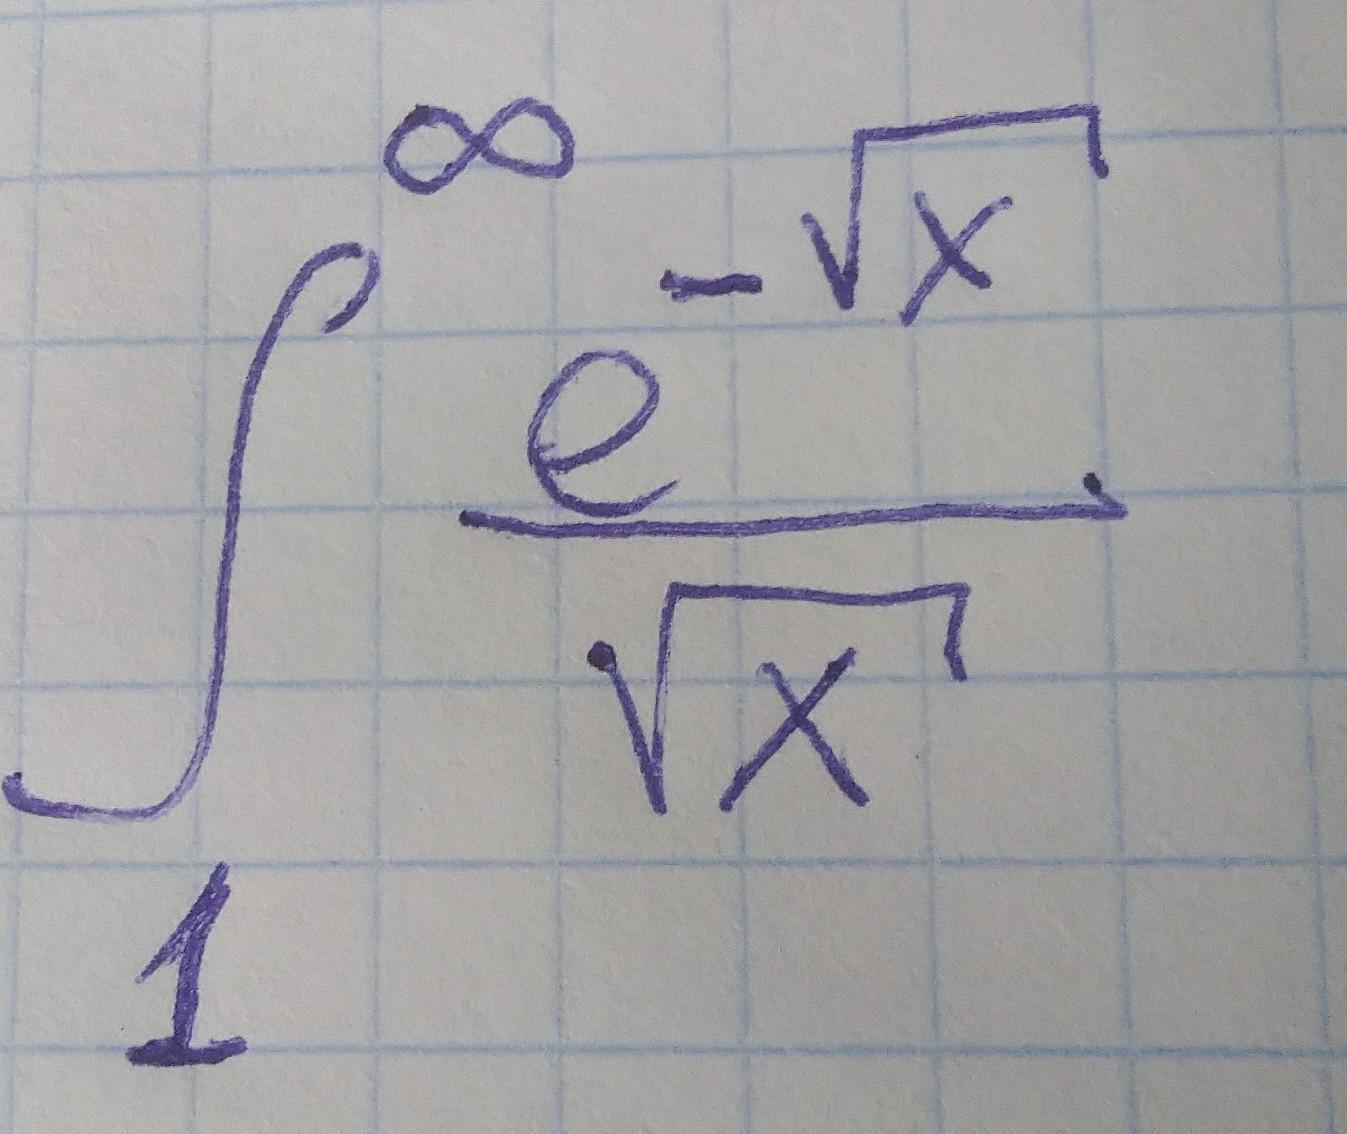 ∫₁^∞ e^(-√x) / √x